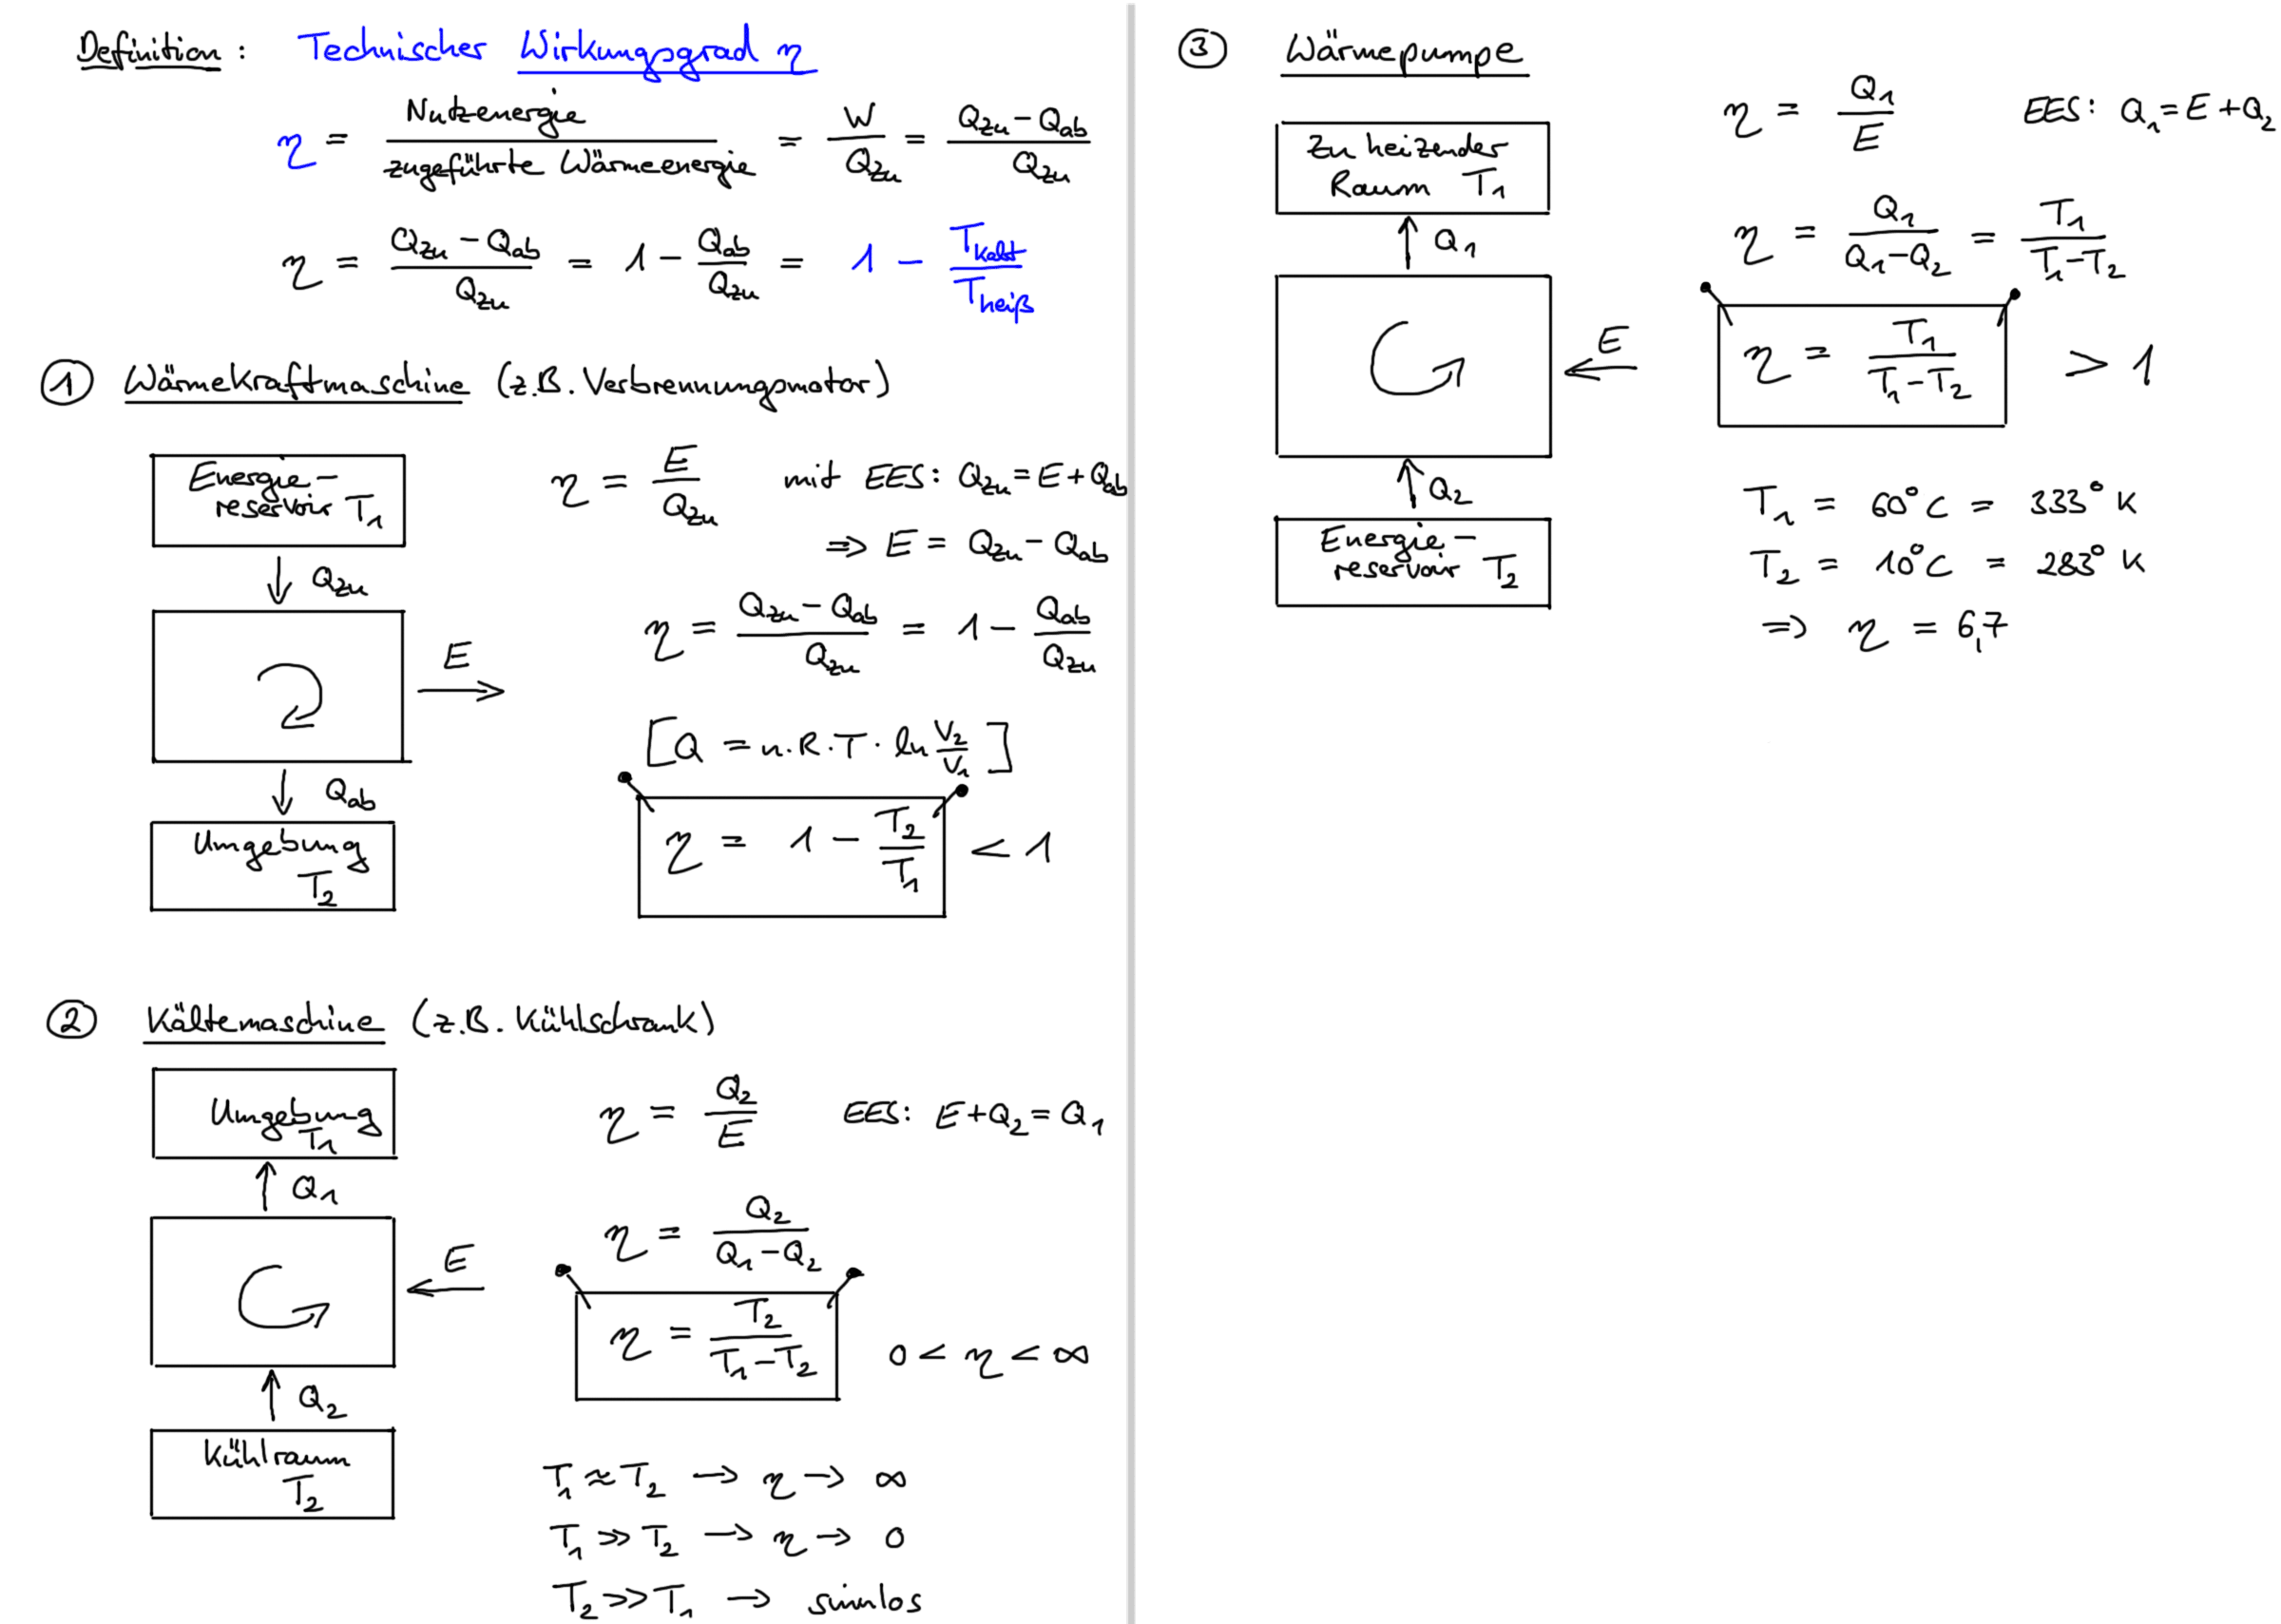 Definition: Technischer Wirkungsgrad η
η = Nutzenergie / zugeführte Wärmeenergie = W / Q_zu = (Q_zu − Q_ab) / Q_zu
η = (Q_zu − Q_ab) / Q_zu = 1 − Q_ab / Q_zu = 1 − T_kalt / T_heiß
① Wärmekraftmaschine (z.B. Verbrennungsmotor)
Energie-
reservoir T₁
Q_zu
E
Q_ab
Umgebung
T₂
η = E / Q_zu mit EES: Q_zu = E + Q_ab
⇒ E = Q_zu − Q_ab
η = (Q_zu − Q_ab) / Q_zu = 1 − Q_ab / Q_zu
[Q = n·R·T·ln V₂/V₁]
η = 1 − T₂/T₁ < 1
② Kältemaschine (z.B. Kühlschrank)
Umgebung
T₁
Q₁
E
Q₂
Kühlraum
T₂
η = Q₂ / E EES: E + Q₂ = Q₁
η = Q₂ / (Q₁ − Q₂)
η = T₂ / (T₁ − T₂) 0 < η < ∞
T₁ ≈ T₂ → η → ∞
T₁ ≫ T₂ → η → 0
T₂ ≫ T₁ → sinnlos
③ Wärmepumpe
Zu heizender
Raum T₁
Q₁
E
Q₂
Energie-
reservoir T₂
η = Q₁ / E EES: Q₁ = E + Q₂
η = Q₁ / (Q₁ − Q₂) = T₁ / (T₁ − T₂)
η = T₁ / (T₁ − T₂) > 1
T₁ = 60°C = 333°K
T₂ = 10°C = 283°K
⇒ η = 6,7